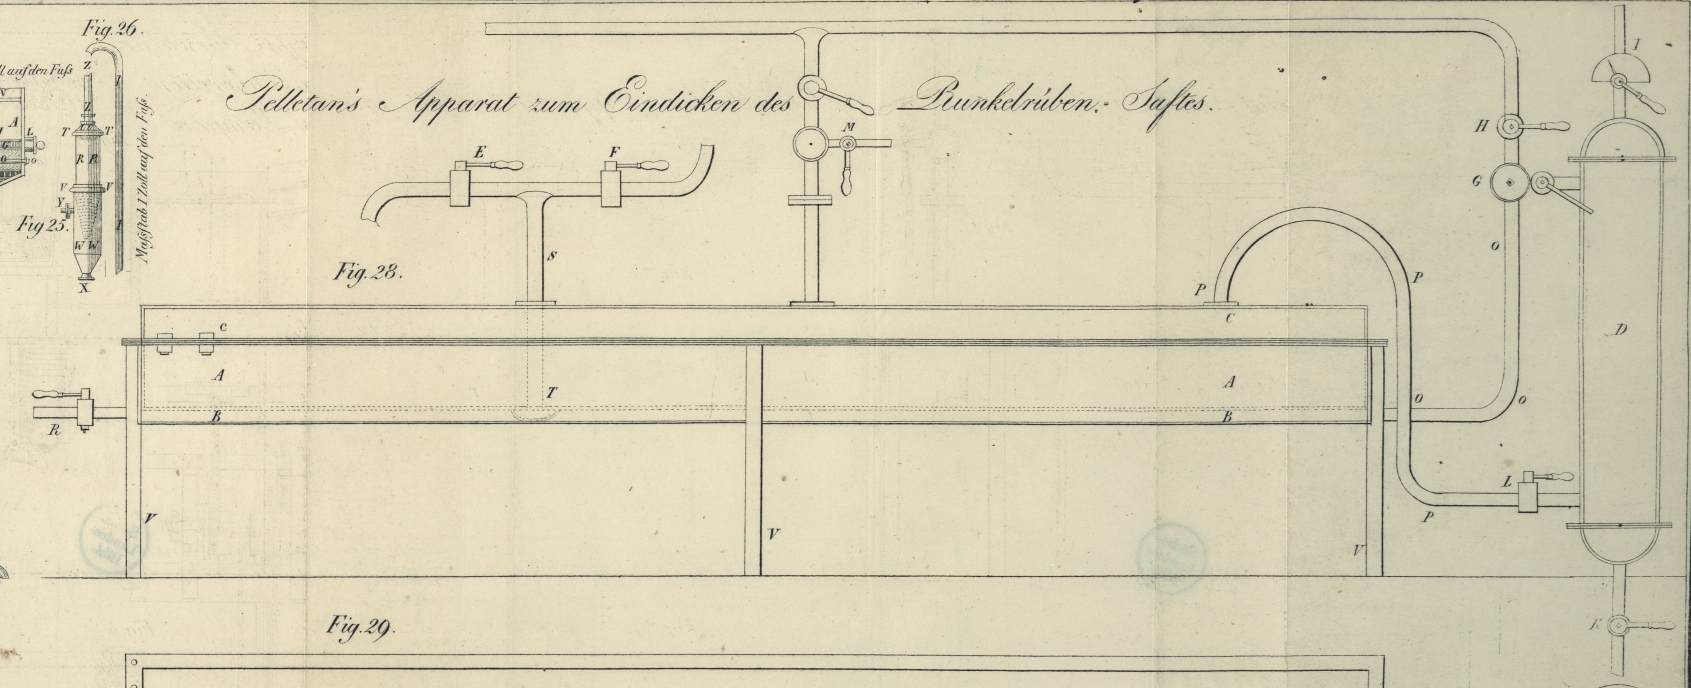 Fig. 26.
ll auf den Fuſs
Z
I
Z
T T
R R
V V
Y
W W
X
I
Maſsſtab 1 Zoll auf den Fuſs.
V
A
L
G
O
o
Fig 25.
Pelletan's Apparat zum Eindicken des Runkelrüben-Saftes.
I
M
H
E
F
G
S
O
Fig. 28.
P
P
D
c
C
A
T
A
O
O
B
B
R
L
V
V
V
P
Fig. 29.
K